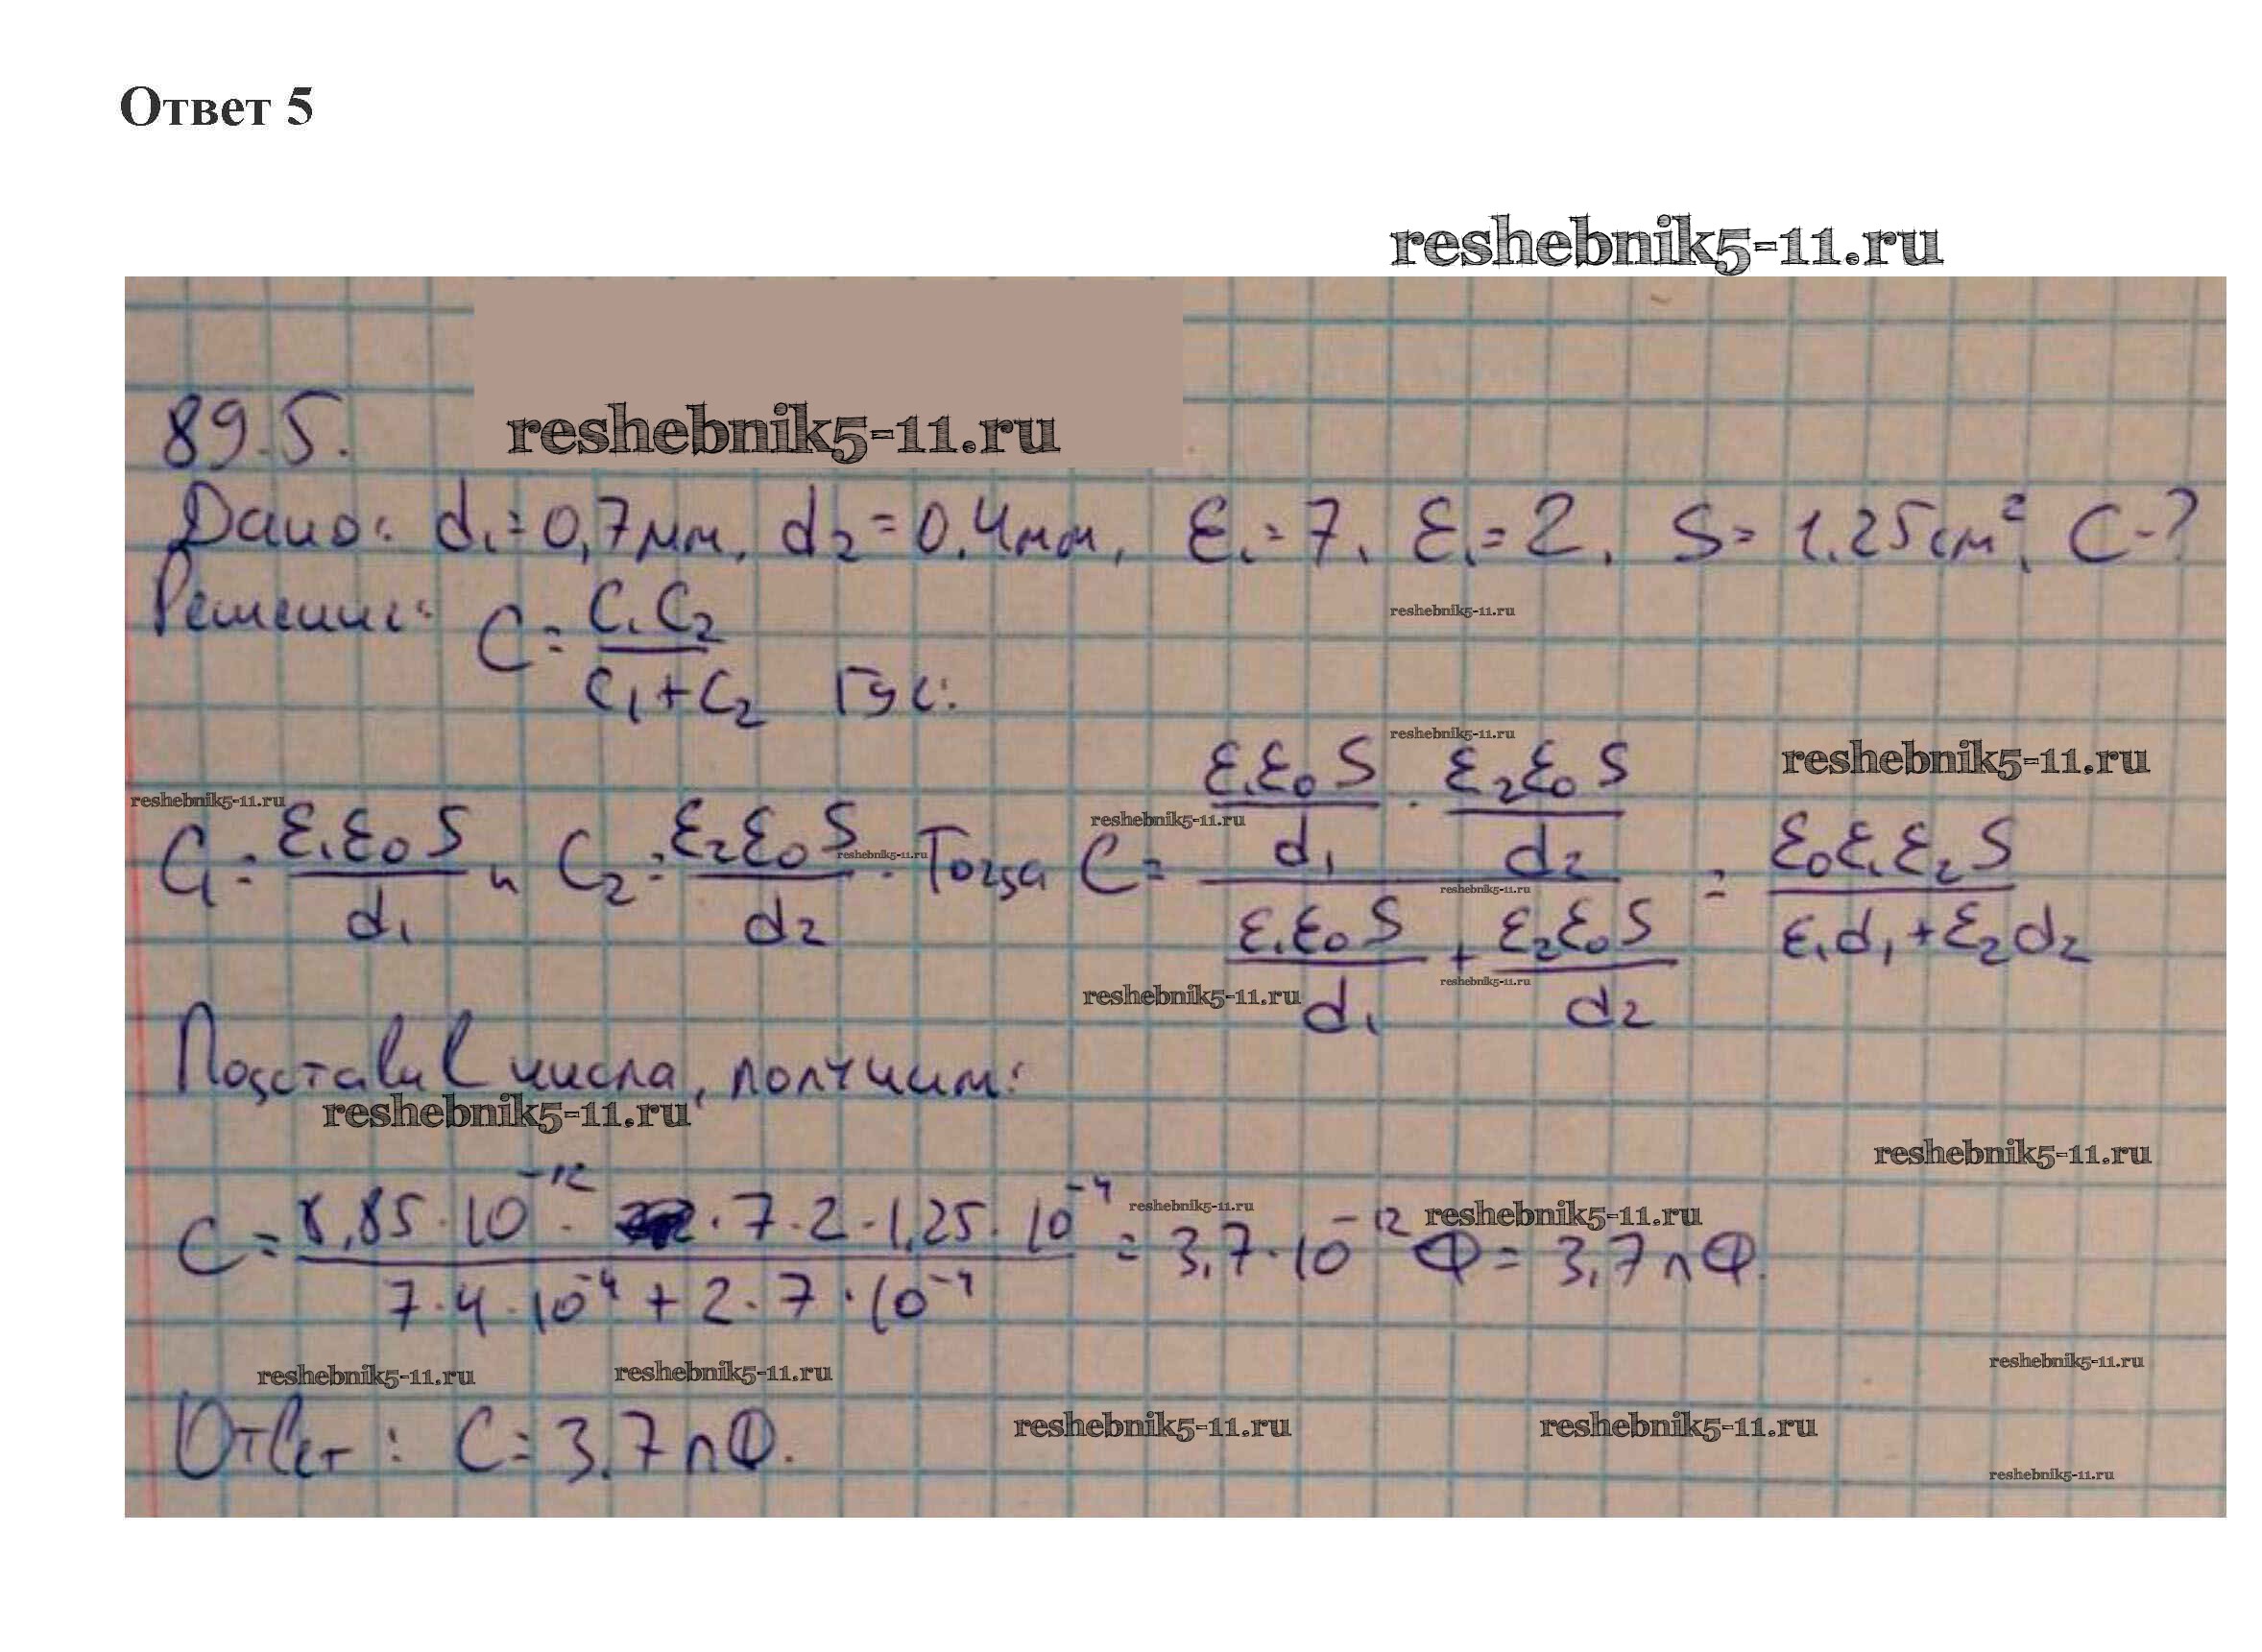 Ответ 5
reshebnik5-11.ru
89.5. reshebnik5-11.ru
Дано: d₁=0,7мм, d₂=0,4мм, ε₁=7, ε₁=2, S=1,25см², C-?
reshebnik5-11.ru
Решение: C = C₁C₂ / C₁+C₂ где:
reshebnik5-11.ru
reshebnik5-11.ru
reshebnik5-11.ru reshebnik5-11.ru
C₁ = ε₁ε₀S / d₁ и C₂ = ε₂ε₀S / d₂. Тогда C = (ε₁ε₀S / d₁ · ε₂ε₀S / d₂) / (ε₁ε₀S / d₁ + ε₂ε₀S / d₂) = ε₀ε₁ε₂S / ε₁d₁+ε₂d₂
reshebnik5-11.ru
reshebnik5-11.ru
reshebnik5-11.ru reshebnik5-11.ru
Подставив числа, получим:
reshebnik5-11.ru
reshebnik5-11.ru
reshebnik5-11.ru reshebnik5-11.ru
C = 8,85·10⁻¹² · ·7·2·1,25·10⁻⁴ / 7·4·10⁻⁴ + 2·7·10⁻⁴ = 3,7·10⁻¹² Ф = 3,7пФ.
reshebnik5-11.ru reshebnik5-11.ru reshebnik5-11.ru
Ответ: C=3,7пФ.
reshebnik5-11.ru reshebnik5-11.ru
reshebnik5-11.ru